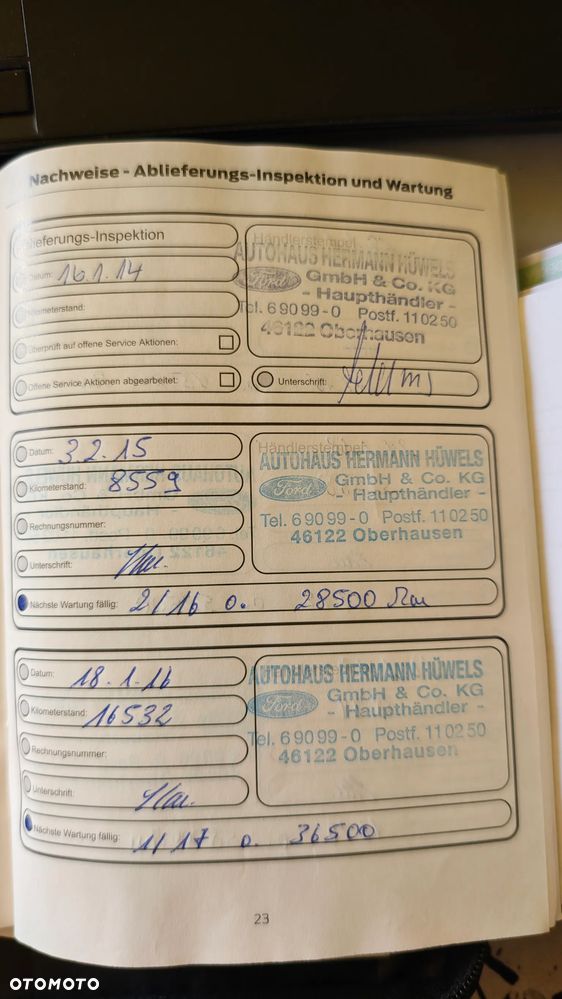 Nachweise - Ablieferungs-Inspektion und Wartung
lieferungs-Inspektion
Datum: 16.1.14
Kilometerstand:
Überprüft auf offene Service Aktionen:
Offene Service Aktionen abgearbeitet:
Händlerstempel
AUTOHAUS HERMANN HÜWELS
Ford
GmbH & Co. KG
- Haupthändler -
Tel. 6 90 99 - 0 Postf. 11 02 50
46122 Oberhausen
Unterschrift:
Datum: 3.2.15
Kilometerstand: 8559
Rechnungsnummer:
Unterschrift:
Händlerstempel
AUTOHAUS HERMANN HÜWELS
Ford
GmbH & Co. KG
- Haupthändler -
Tel. 6 90 99 - 0 Postf. 11 02 50
46122 Oberhausen
Nächste Wartung fällig: 2/16 o. 28500
Datum: 18.1.16
Kilometerstand: 16532
Rechnungsnummer:
Unterschrift:
AUTOHAUS HERMANN HÜWELS
Ford
GmbH & Co. KG
- Haupthändler -
Tel. 6 90 99 - 0 Postf. 11 02 50
46122 Oberhausen
Nächste Wartung fällig: 1/17 o. 36500
23
OTOMOTO